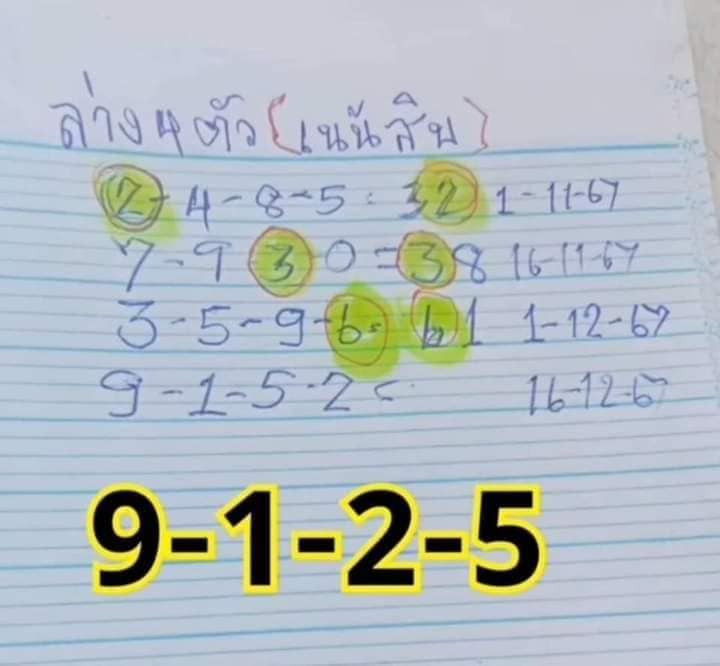 ล่าง 4 ตัว (เน้นสิบ)
2-4-8-5 = 32 1-11-67
7-9 3 0 = 38 16-11-67
3-5-9-6 = 61 1-12-67
9-1-5-2 = 16-12-67
9-1-2-5